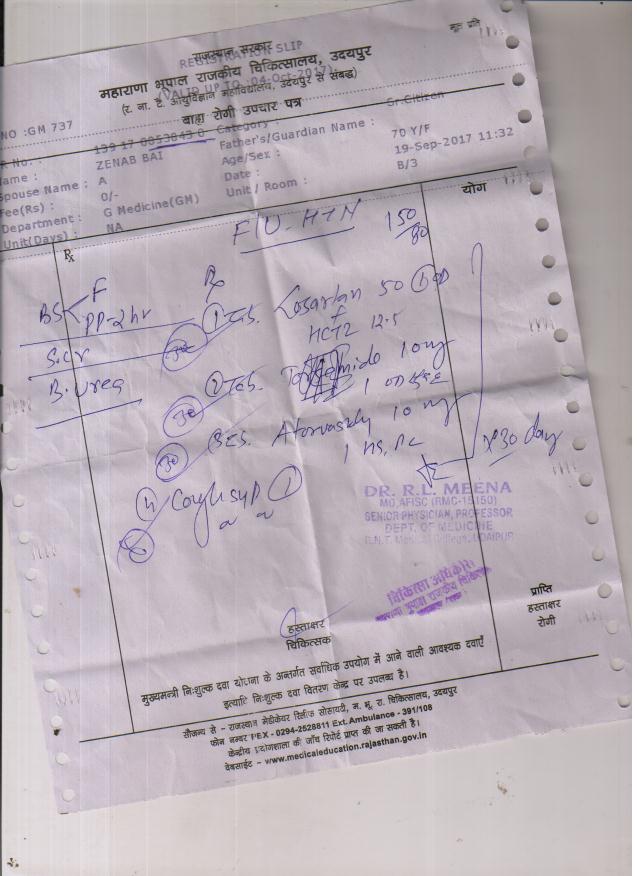 राजस्थान सरकार
REGISTRATION SLIP
मूल प्रति
महाराणा भूपाल राजकीय चिकित्सालय, उदयपुर
(VALID UP TO :04-Oct-2017)
(र. ना. टै. आयुर्विज्ञान महाविद्यालय, उदयपुर से संबद्ध)
बाह्य रोगी उपचार पत्र
NO :GM 737
R No. :
Category :
Sr.Citizen
ame : ZENAB BAI
Father's/Guardian Name :
Spouse Name : A
Age/Sex : 70 Y/F
Fee(Rs) : 0/-
Date : 19-Sep-2017 11:32
Department : G Medicine(GM)
Unit / Room : B/3
Unit(Days) : NA
योग
Rx
F/U-HTN 150/80
Rx
BS F
PP-2hr
① Tab. Losartan 50 ① OD
+
HCTZ 12.5
S.Cr
B. Urea
② Tab. 10 mg
1 OD
10 mg
1 HS
x 30 day
Cough syp ①
DR. R.L. MEENA
MD,AFISC (RMC-15150)
SENIOR PHYSICIAN, PROFESSOR
DEPT. OF MEDICINE
R.N.T. Medical College, UDAIPUR
चिकित्सा अधिकारी
हस्ताक्षर
चिकित्सक
प्राप्ति
हस्ताक्षर
रोगी
मुख्यमन्त्री निःशुल्क दवा योजना के अन्तर्गत सर्वाधिक उपयोग में आने वाली आवश्यक दवाएँ
इत्यादि निःशुल्क दवा वितरण केन्द्र पर उपलब्ध है।
सौजन्य से - राजस्थान मेडीकेयर रिलीफ सोसायटी, म. भू. रा. चिकित्सालय, उदयपुर
फोन नम्बर PEX - 0294-2528811 Ext. Ambulance - 391/108
केन्द्रीय प्रयोगशाला की जाँच रिपोर्ट प्राप्त की जा सकती है।
वेबसाईट - www.medicaleducation.rajasthan.gov.in